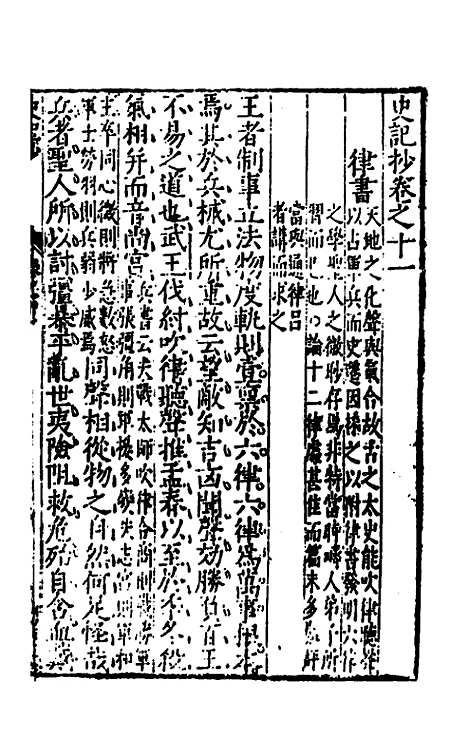 史記抄卷之十一
律書
天地之化聲與氣合故古之太史能吹律聽聲
以占軍兵而史遷因採之以附律書發明六律
之學聖人之微眇存焉非特當時疇人弟子所
習而已也論十二律處甚佳而篇末多
當與通律呂
者講而求之
王者制事立法物度軌則壹稟於六律六律爲萬事根本
焉其於兵械尤所重故云望敵知吉凶聞聲効勝負百王
不易之道也武王伐紂吹律聽聲推孟春以至於季冬殺
氣相幷而音尚宮
兵書云夫戰太師吹律合商則戰勝軍
事張彊角則軍擾多變失志宮則軍和
主卒同心徵則將急數怒
軍士勞羽則兵弱少威焉
同聲相從物之自然何足怪哉
兵者聖人所以討彊暴平亂世夷險阻救危殆自含血